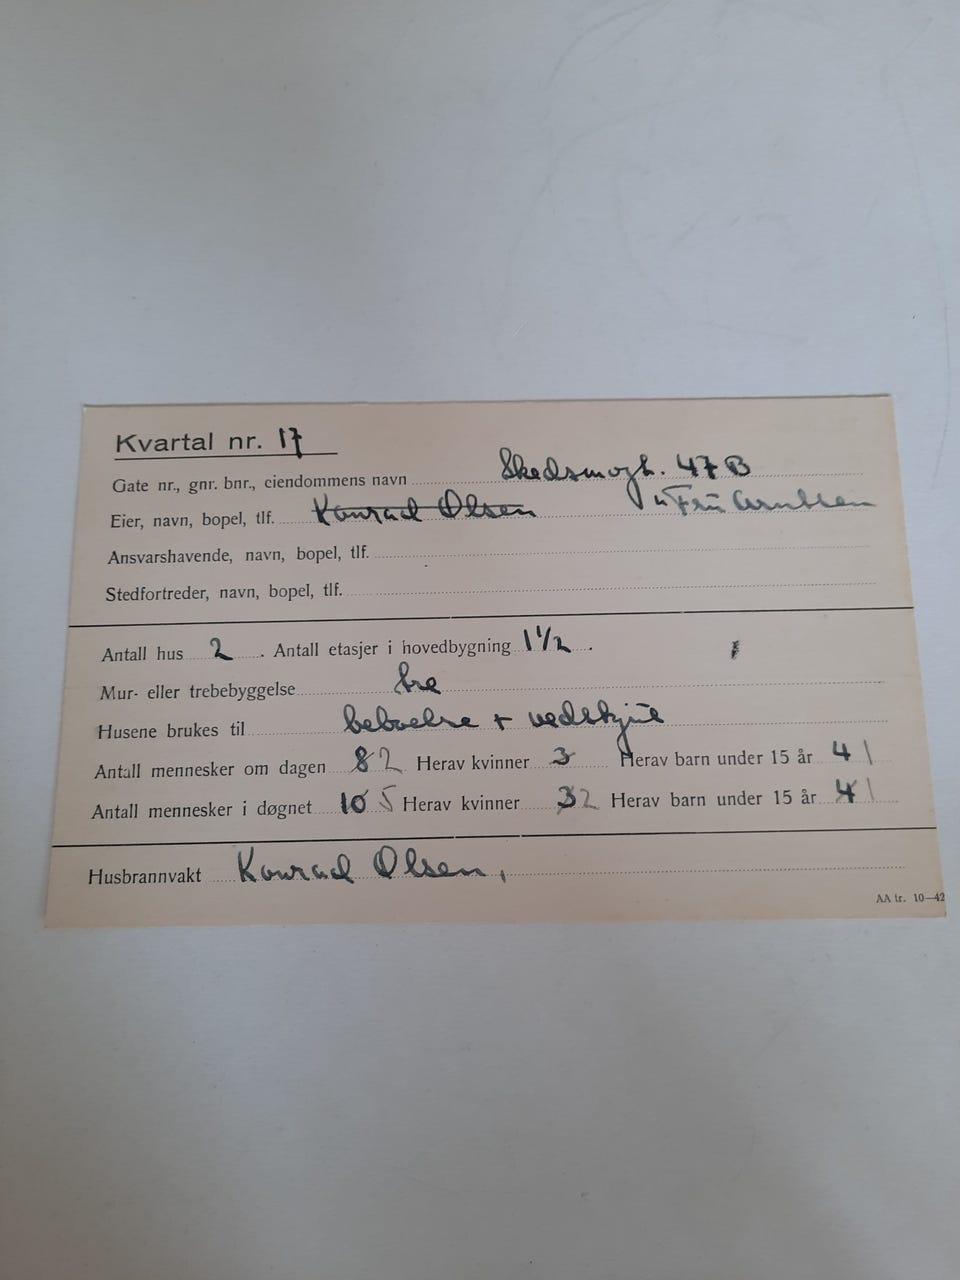 Kvartal nr. 17
Gate nr., gnr. bnr., eiendommens navn Skedsmogt. 47 B
Eier, navn, bopel, tlf. Konrad Olsen Fru Arntsen
Ansvarshavende, navn, bopel, tlf.
Stedfortreder, navn, bopel, tlf.
Antall hus 2. Antall etasjer i hovedbygning 1 1/2.
Mur- eller trebebyggelse tre
Husene brukes til beboelse + vedskjul
Antall mennesker om dagen 8 2 Herav kvinner 3 Herav barn under 15 år 4 1
Antall mennesker i døgnet 10 5 Herav kvinner 3 2 Herav barn under 15 år 4 1
Husbrannvakt Konrad Olsen,
AA tr. 10—42